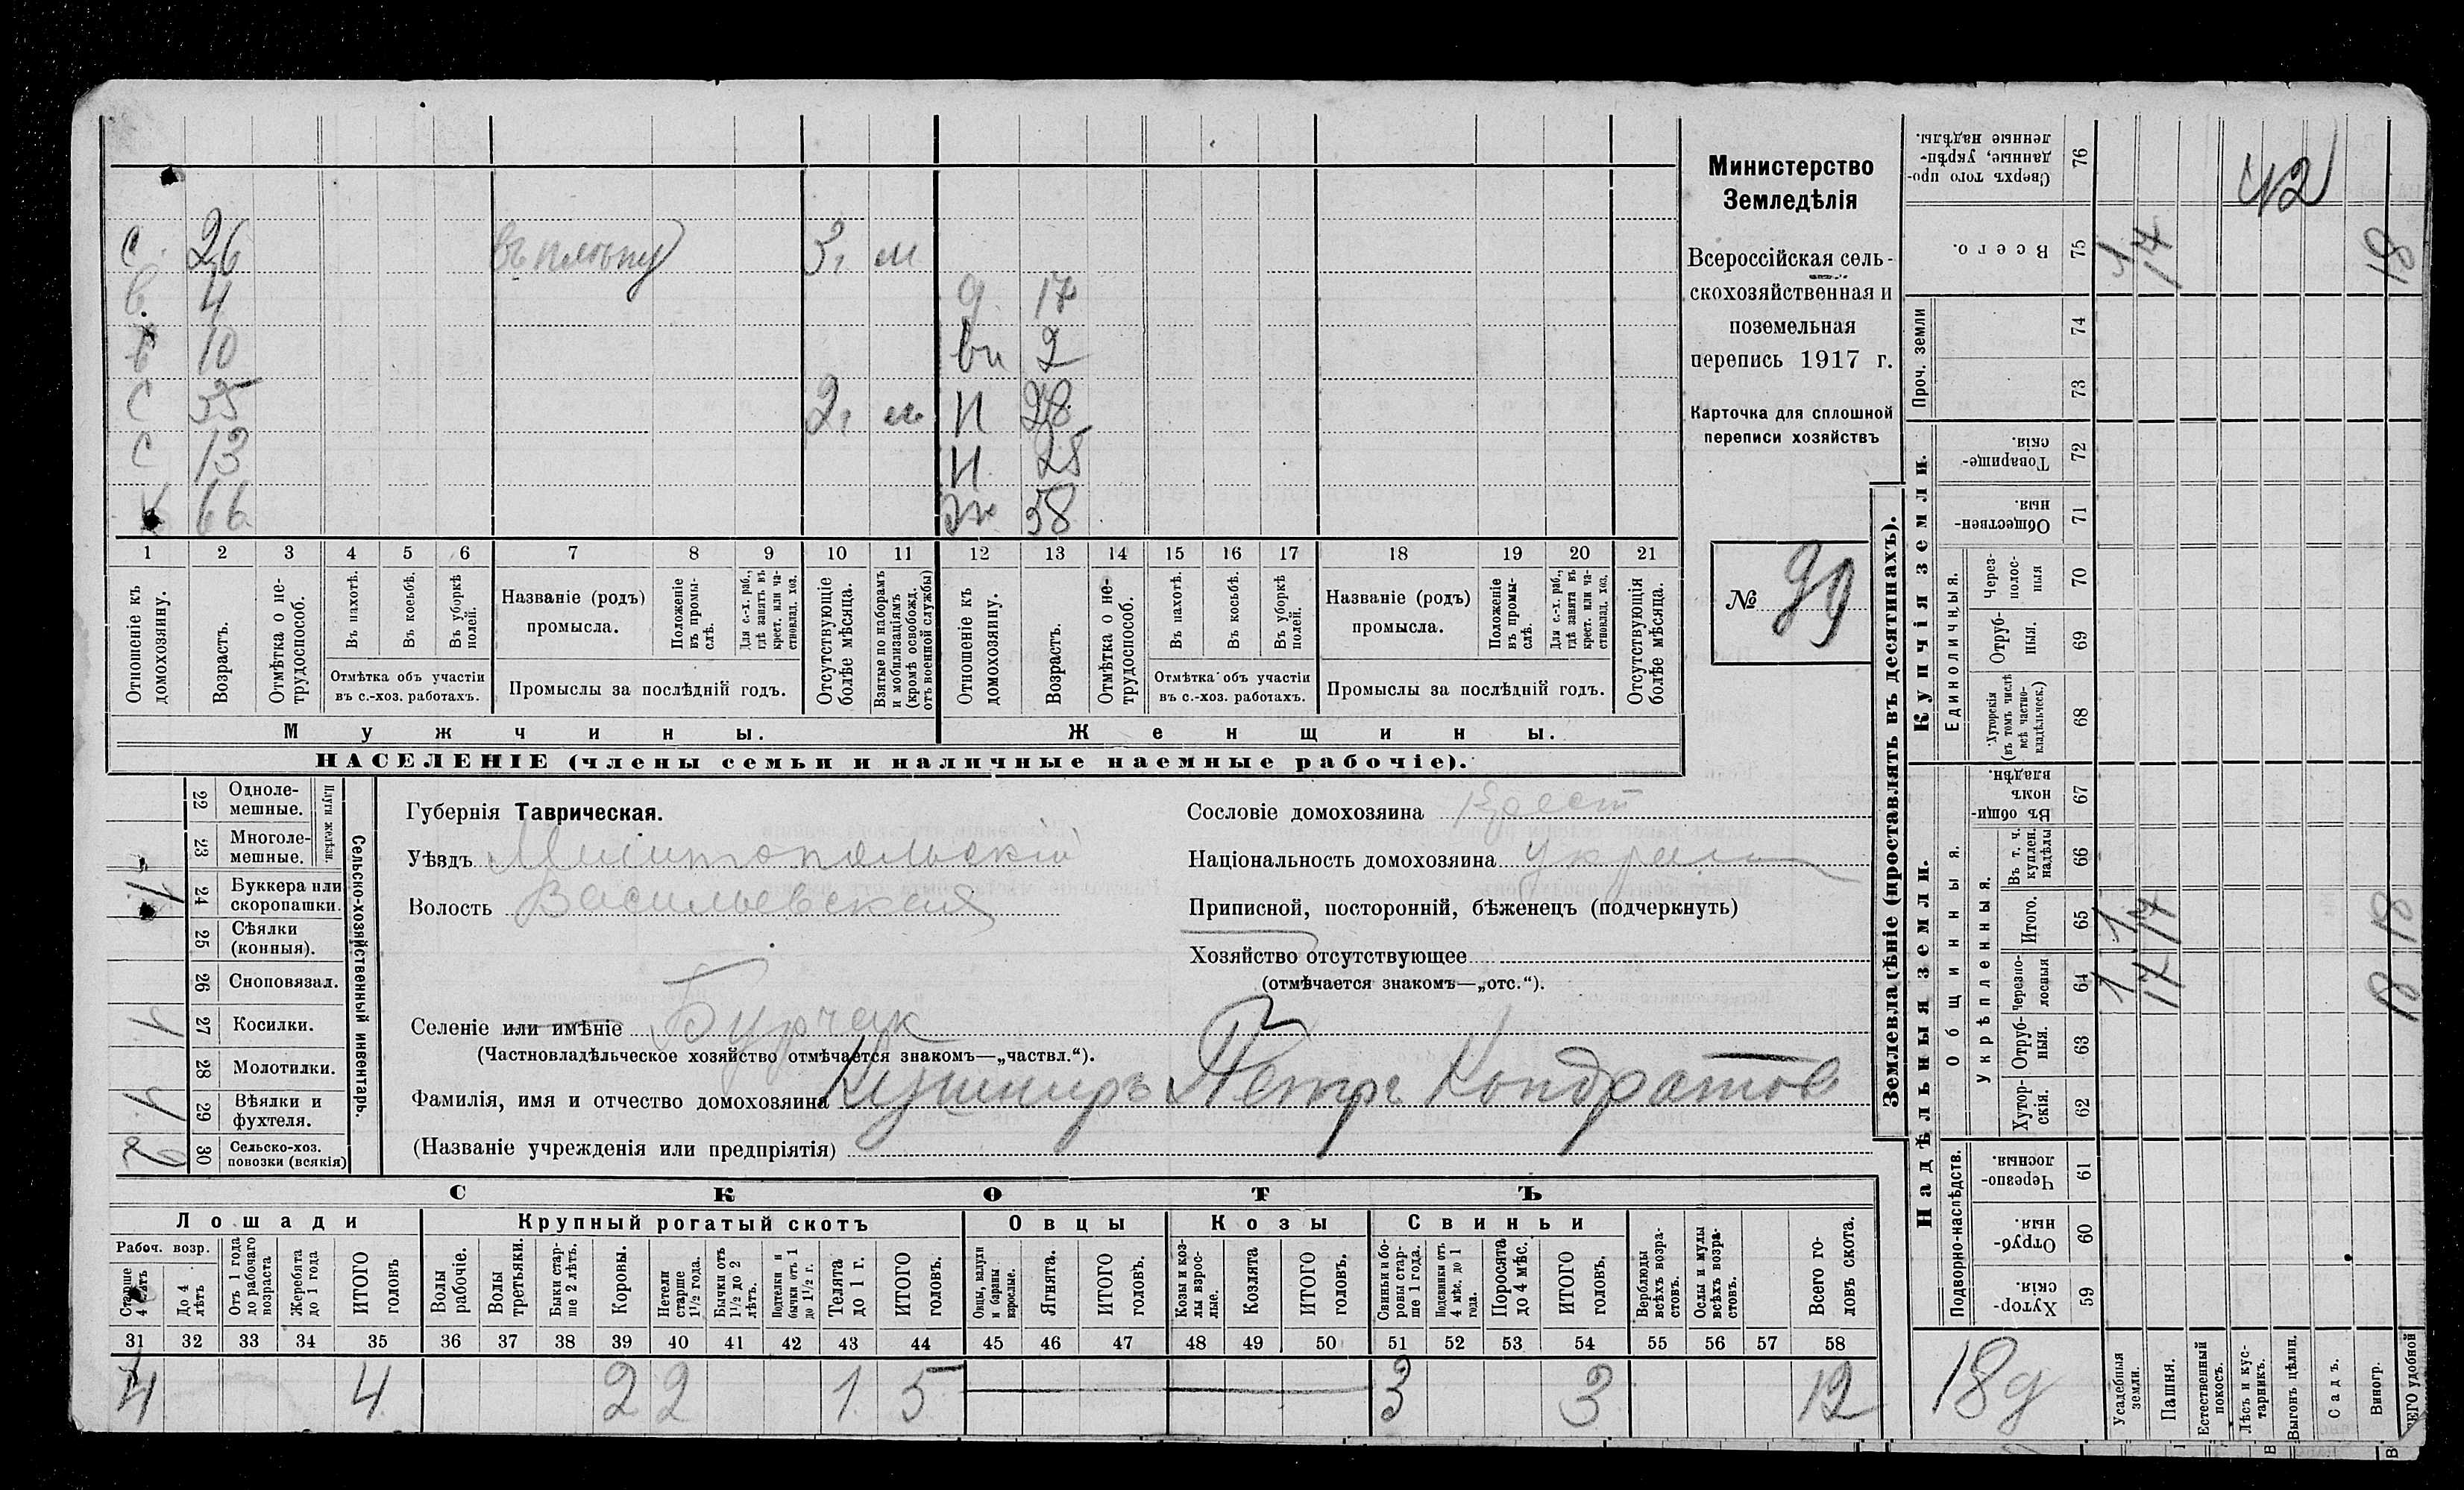 с 26 въ плѣну 3, м
в 4 д 17
в 10 вн 2
с 35 2, м Н 28
с 13 Н 25
х 66 Ж 58
1 2 3 4 5 6 7 8 9 10 11 12 13 14 15 16 17 18 19 20 21
Отношеніе къ домохозяину.
Возрастъ.
Отмѣтка о не-трудоспособ.
Въ пахотѣ.
Въ косьбѣ.
Въ уборкѣ полей.
Отмѣтка объ участіи въ с.-хоз. работахъ.
Названіе (родъ) промысла.
Положеніе въ промы-слѣ.
Для с.-х. раб., гдѣ занятъ въ крест. или ча-стновлад. хоз.
Промыслы за послѣдній годъ.
Отсутствующіе болѣе мѣсяца.
Взятые по наборамъ и мобилизаціямъ (кромѣ освобожд. отъ военной службы)
Отношеніе къ домохозяину.
Возрастъ.
Отмѣтка о не-трудоспособ.
Въ пахотѣ.
Въ косьбѣ.
Въ уборкѣ полей.
Отмѣтка объ участіи въ с.-хоз. работахъ.
Названіе (родъ) промысла.
Положеніе въ промы-слѣ.
Для с.-х. раб., гдѣ занята въ крест. или ча-стновлад. хоз.
Промыслы за послѣдній годъ.
Отсутствующія болѣе мѣсяца.
Мужчины. Женщины.
НАСЕЛЕНІЕ (члены семьи и наличные наемные рабочіе).
Министерство
Земледѣлія
Всероссійская сель-
скохозяйственная и
поземельная
перепись 1917 г.
Карточка для сплошной
переписи хозяйствъ
№ 99
22 Одноле-мешные.
23 Многоле-мешные.
Плуги желѣзн.
24 Буккера или скоропашки. 1
25 Сѣялки (конныя).
26 Сноповязал.
27 Косилки. 1
28 Молотилки.
29 Вѣялки и фухтеля. 1
30 Сельско-хоз. повозки (всякія) 2
Сельско-хозяйственный инвентарь.
Губернія Таврическая.
Уѣздъ Мелитопольскій
Волость Васильевская
Селеніе или имѣніе Бурчак
(Частновладѣльческое хозяйство отмѣчается знакомъ—„частвл.“).
Фамилія, имя и отчество домохозяина Кушниръ Петръ Кондратов
(Названіе учрежденія или предпріятія)
Сословіе домохозяина Крест
Національность домохозяина украин
Приписной, посторонній, бѣженецъ (подчеркнуть)
Хозяйство отсутствующее
(отмѣчается знакомъ—„отс.“).
СКОТЪ
Лошади Крупный рогатый скотъ Овцы Козы Свиньи
Рабоч. возр.
Старше 4 лѣтъ
До 4 лѣтъ
Отъ 1 года до рабочаго возраста
Жеребята до 1 года
ИТОГО головъ
Волы рабочіе.
Волы третьяки.
Быки стар-ше 2 лѣтъ.
Коровы.
Нетели старше 1½ года.
Бычки отъ 1½ до 2 лѣтъ.
Подтелки и бычки отъ 1 до 1½ г.
Телята до 1 г.
ИТОГО головъ.
Овцы, валухи и бараны взрослые.
Ягнята.
ИТОГО головъ.
Козы и коз-лы взрос-лые.
Козлята
ИТОГО головъ.
Свиньи и бо-ровы стар-ше 1 года.
Подсвинки отъ 4 мѣс. до 1 года.
Поросята до 4 мѣс.
ИТОГО головъ.
Верблюды всѣхъ возра-стовъ.
Ослы и мулы всѣхъ возра-стовъ.
Всего го-ловъ скота.
31 32 33 34 35 36 37 38 39 40 41 42 43 44 45 46 47 48 49 50 51 52 53 54 55 56 57 58
4 4 2 2 1 5 3 3 12
Землевладѣніе (проставлять въ десятинахъ).
Надѣльныя земли. Купчія земли.
Проч. земли
Подворно-наслѣдств.
Общинныя.
Укрѣпленныя.
Единоличныя.
76 Сверхъ того про-данные, укрѣп-ленные надѣлы. 42
75 Всего. 1 17 18
74
73
72 Товарище-скія.
71 Обществен-ныя.
70 Через-полос-ныя
69 Отруб-ныя.
68 Хуторскія (въ томъ числѣ всѣ частно-владѣльческ.)
67 Въ общин-номъ владѣн.
66 Въ т. ч. куплен. надѣлы
65 Итого. 1 17 18
64 Черезпо-лосныя 1 17 18
63 Отруб-ныя.
62 Хутор-скія.
61 Черезпо-лосныя.
60 Отруб-ныя.
59 Хутор-скія.
18 д
Усадебныя земли.
Пашня.
Естественный покосъ.
Лѣсъ и кус-тарникъ.
Выгонъ цѣлин.
Садъ.
Виногр.